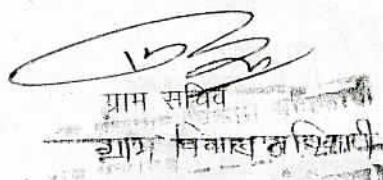 ग्राम सचिव
ग्राम विकास अधिकारी